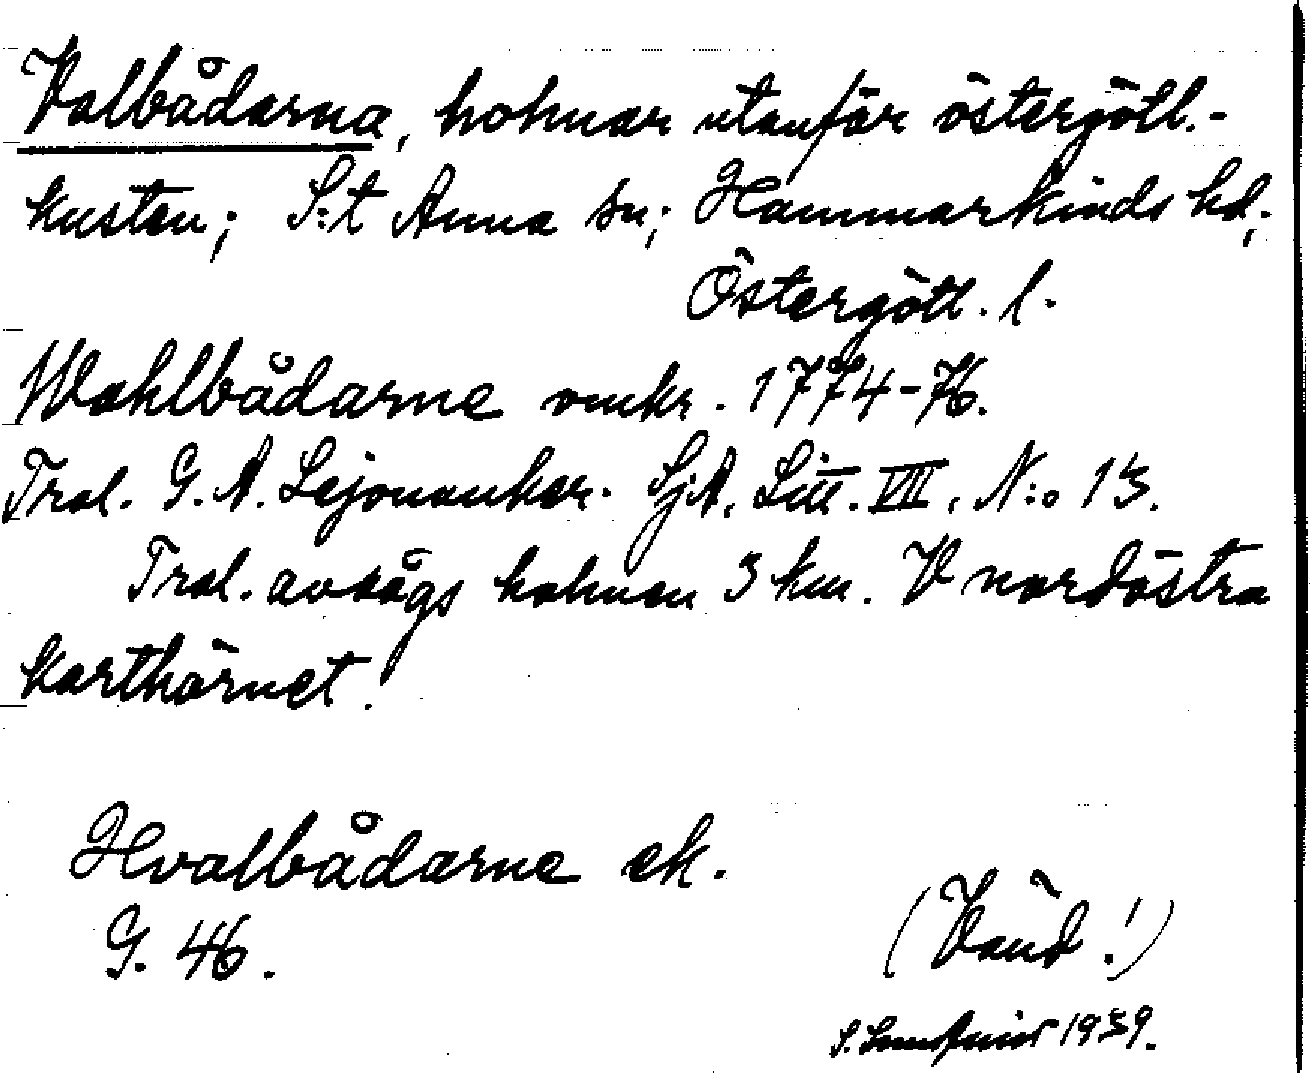 Valbådarna, holmar utanför östergötl.-
kusten; S:t Anna sn; Hammarkinds hd;
Östergötl. l.
Wahlbådarne omkr. 1774-76.
Trol. G. A. Lejonanker. SjA, Litt. VIII, N:o 13.
Trol. avsågs holmen 3 km. V nordöstra
karthörnet.
Hvalbådarne ek.
G. 46.
(Vänd!)
S. 1939.